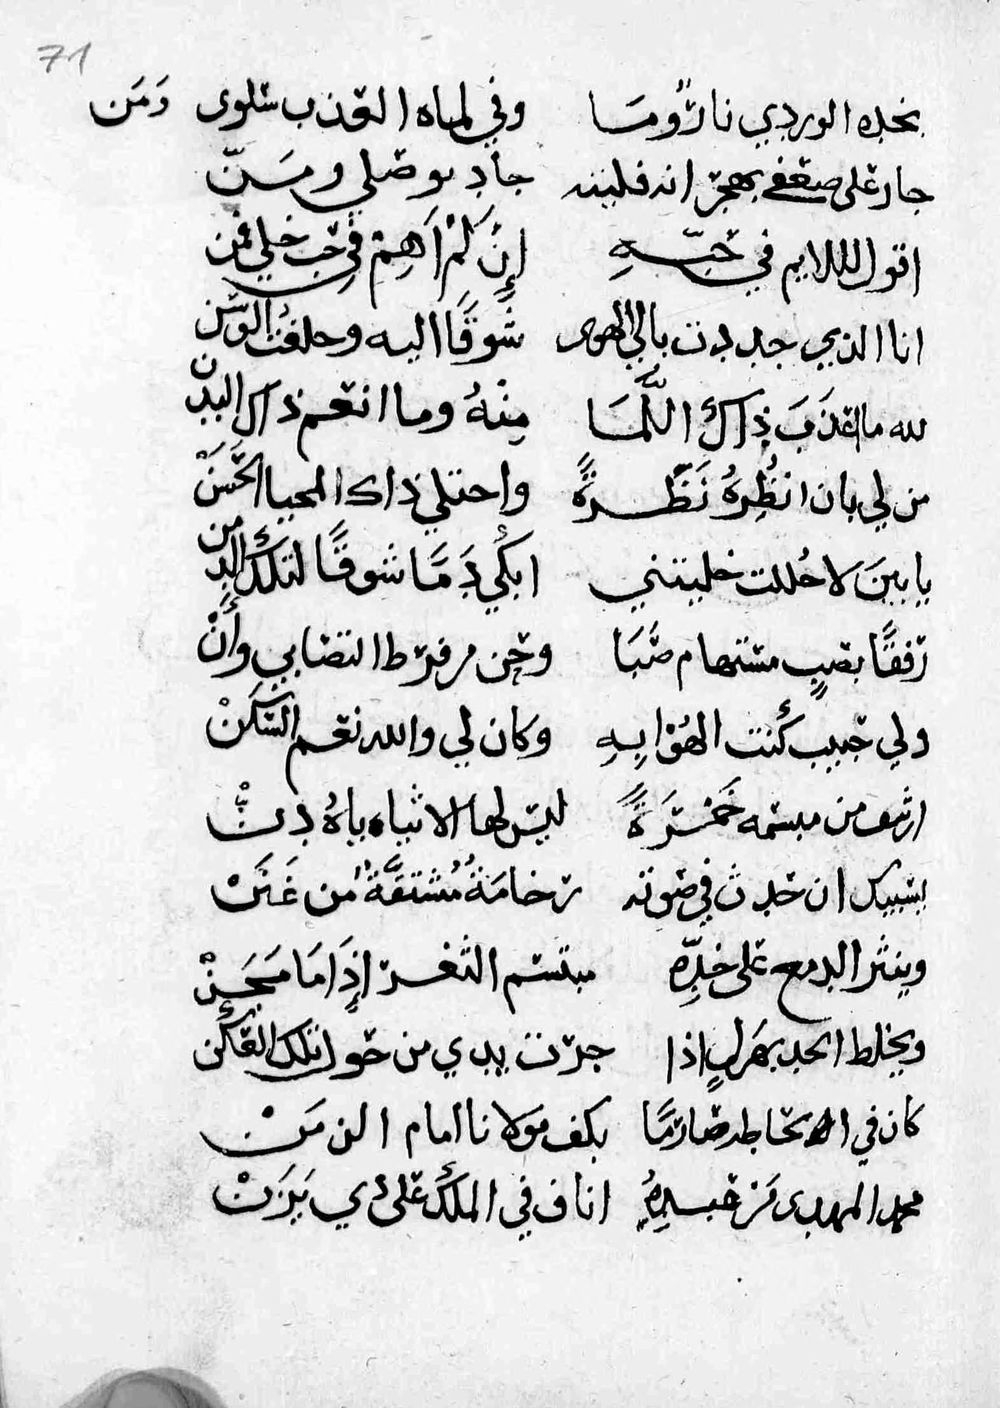 71
بخده الوردي نار وما وفي لماه العذب سلوى ومن
جار على ضعفي بهجر انه فليته جاد بوصلي ومن
اقول لللايم في حبه إن لم أهم في حب خلي فمن
انا الذي جددت بالي الهوى شوقا اليه وحلفت الوسن
لله ما اعذب ذاك اللما منه وما انعم ذاك البدن
من لي بان انظره نظرة واجتلي ذاك المحيا الحسن
يا بين لا حللت خليتني ابكي دما شوقا لتلك الدمن
رفقا بصب مستهام صبا وحن من فرط التصابي وأن
ولي حبيب كنت الهو به وكان لي والله نعم السكن
ارشف من مبسمه خمرة ليس لها الانباه دن
يسبيك ان حدث في صوته رخامة مشتقة من غنن
وينثر الدمع على خده مبتسم الثغر إذا ما مجن
ويخلط الجد بهزل اذا جرت يدي من حول تلك العكن
كان في الحاظه صارما بكف مولانا امام الزمن
محمد المهدي من عبده اناف في الملك على ذي يزن